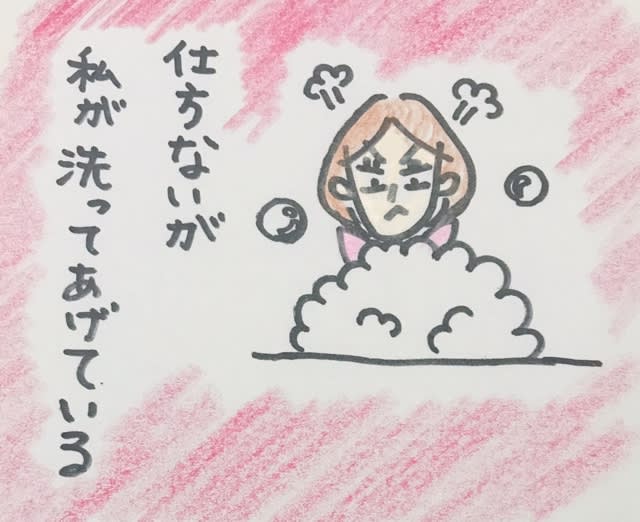 仕方ないが
私が洗ってあげている